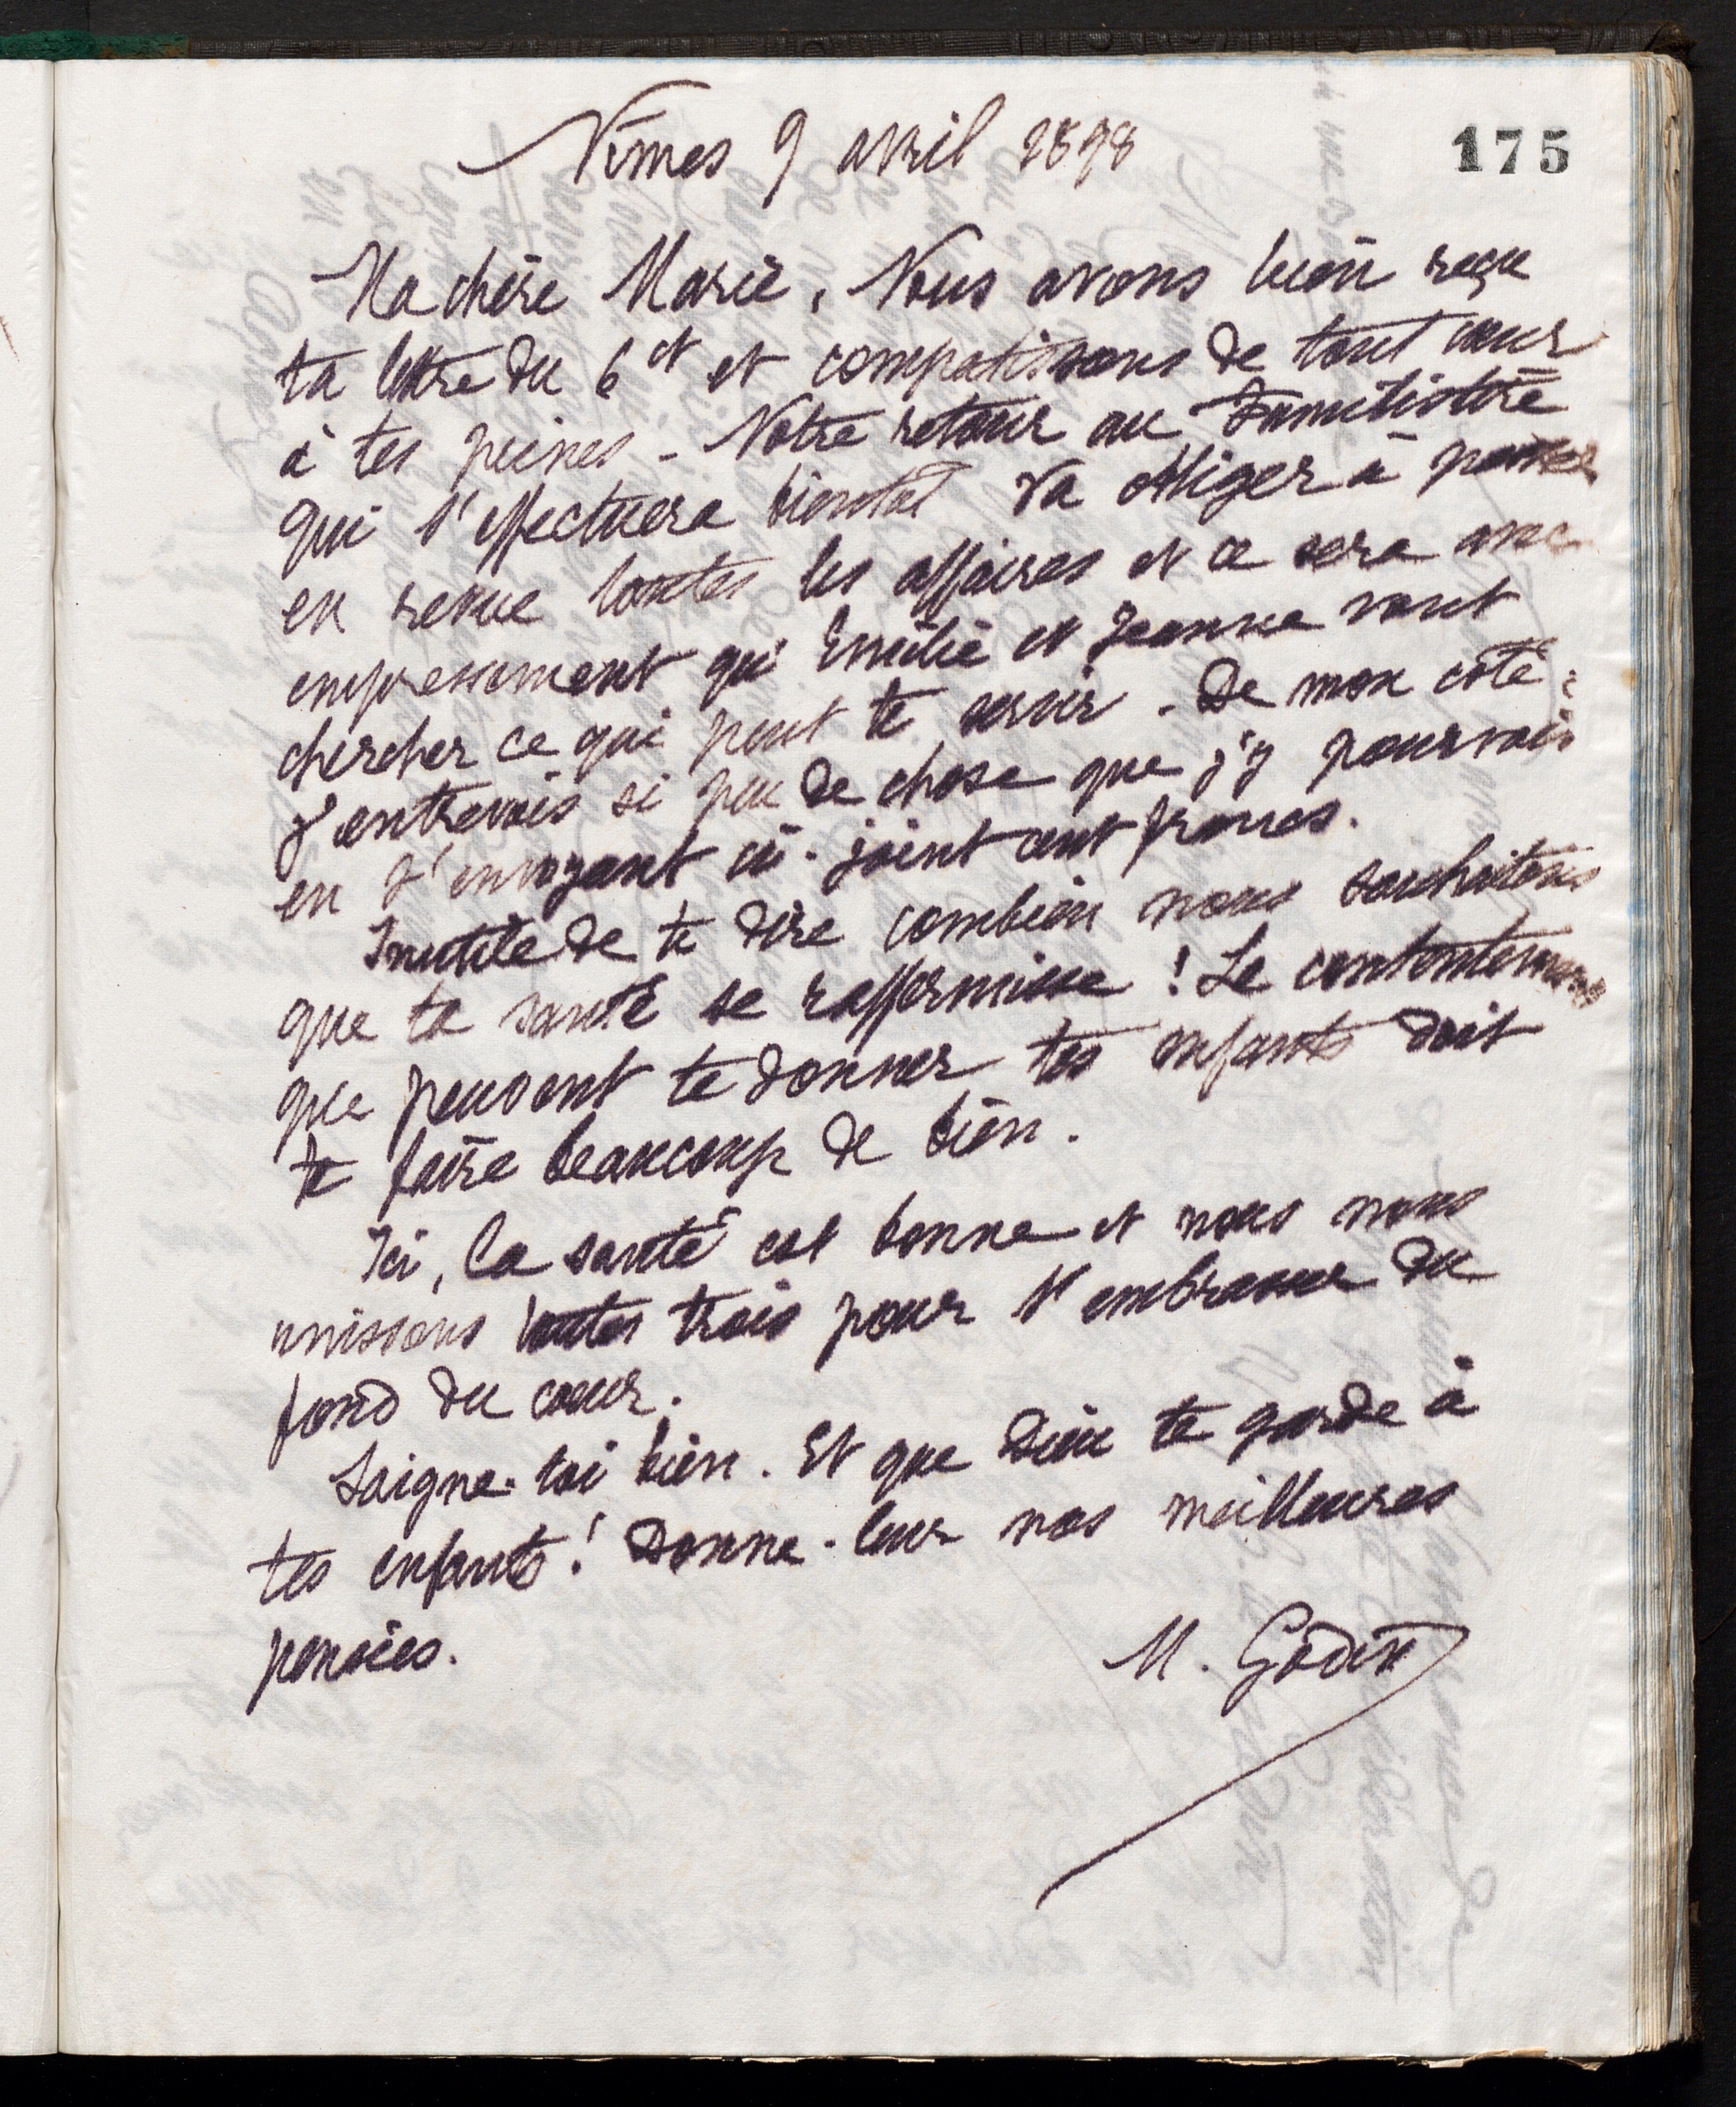 Nîmes 9 avril 1898
175
Ma chère Marie, Nous avons bien reçu
ta lettre du 6 ct et compatissons de tout cœur
à tes peines. Notre retour au Familistère
qui s'effectuera bientôt va obliger à passer
en revue toutes les affaires et ce sera avec
empressement qu'Emilie et Jeanne vont
chercher ce qui peut te servir. De mon côté
j'entrevois si peu de chose que j'y pourvois
en t'envoyant ci-joint cent francs.
Inutile de te dire combien nous souhaitons
que ta santé se raffermisse ! Le contentement
que peuvent te donner tes enfants doit
te faire beaucoup de bien.
Ici, la santé est bonne et nous nous
unissons toutes trois pour t'embrasser du
fond du cœur.
Soigne-toi bien. Et que Dieu te garde à
tes enfants ! Donne-leur nos meilleures
pensées.
M. Godin